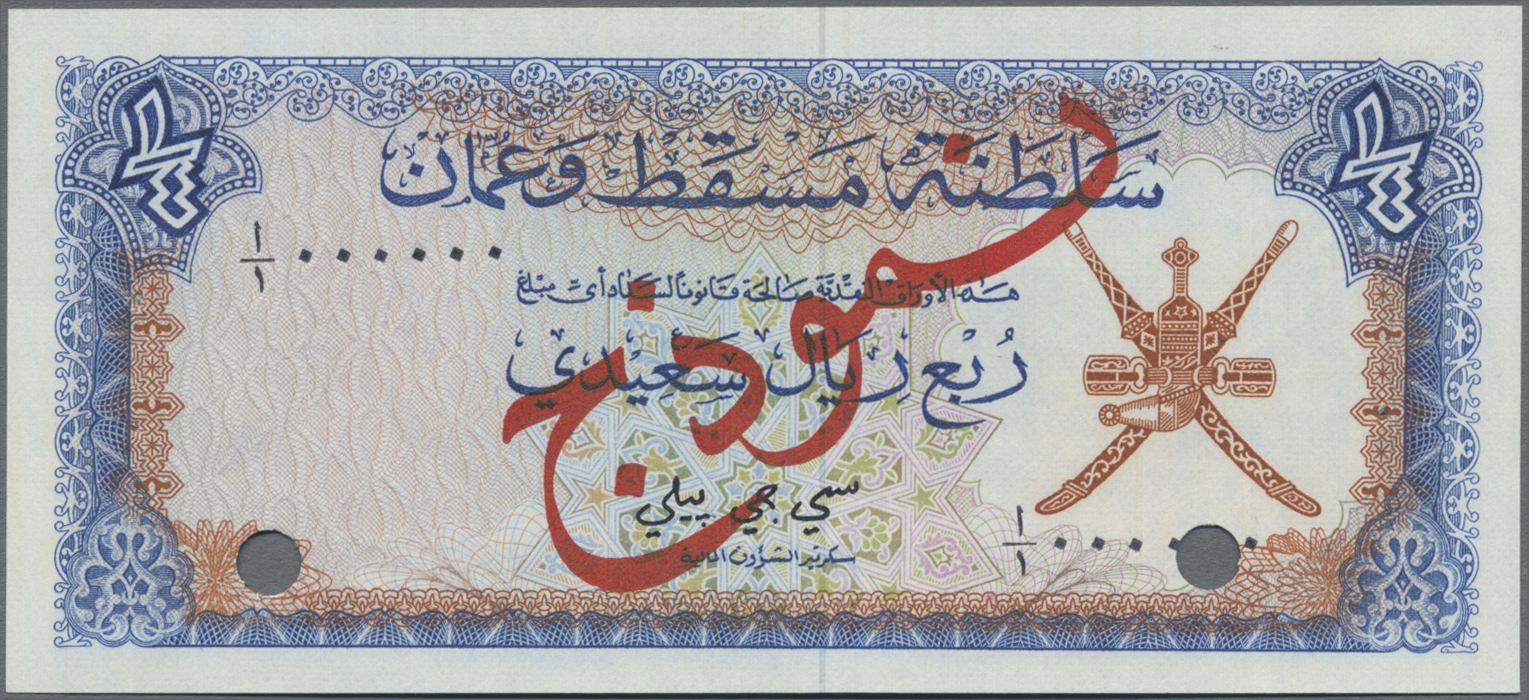 ¼ ¼
سَلطنَة مَسقَط وَعُمان
١/١ ٠٠٠٠٠٠
هذه الأوراق النقدية صالحة قانوناً لسداد أي مبلغ
رُبع رِيَال سَعِيدي
نموذج
سي جي بيلي
سكرتير الشؤون المالية
١/١ ٠٠٠٠٠٠